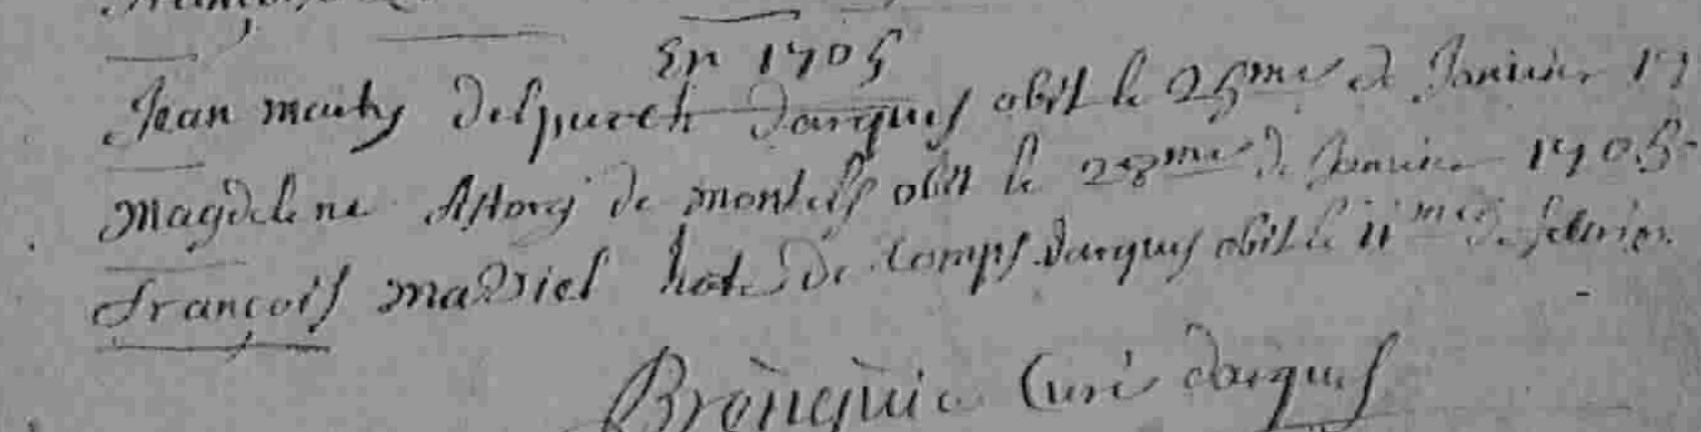 En 1705
Jean mauty delpuech darques obiit le 25me de Janvier 17
Magdelene Astorg de montels obiit le 28me de Janvier 1705
François madriel hote de comps darques obiit le 11me de febvrier
Brenguié Curé darques